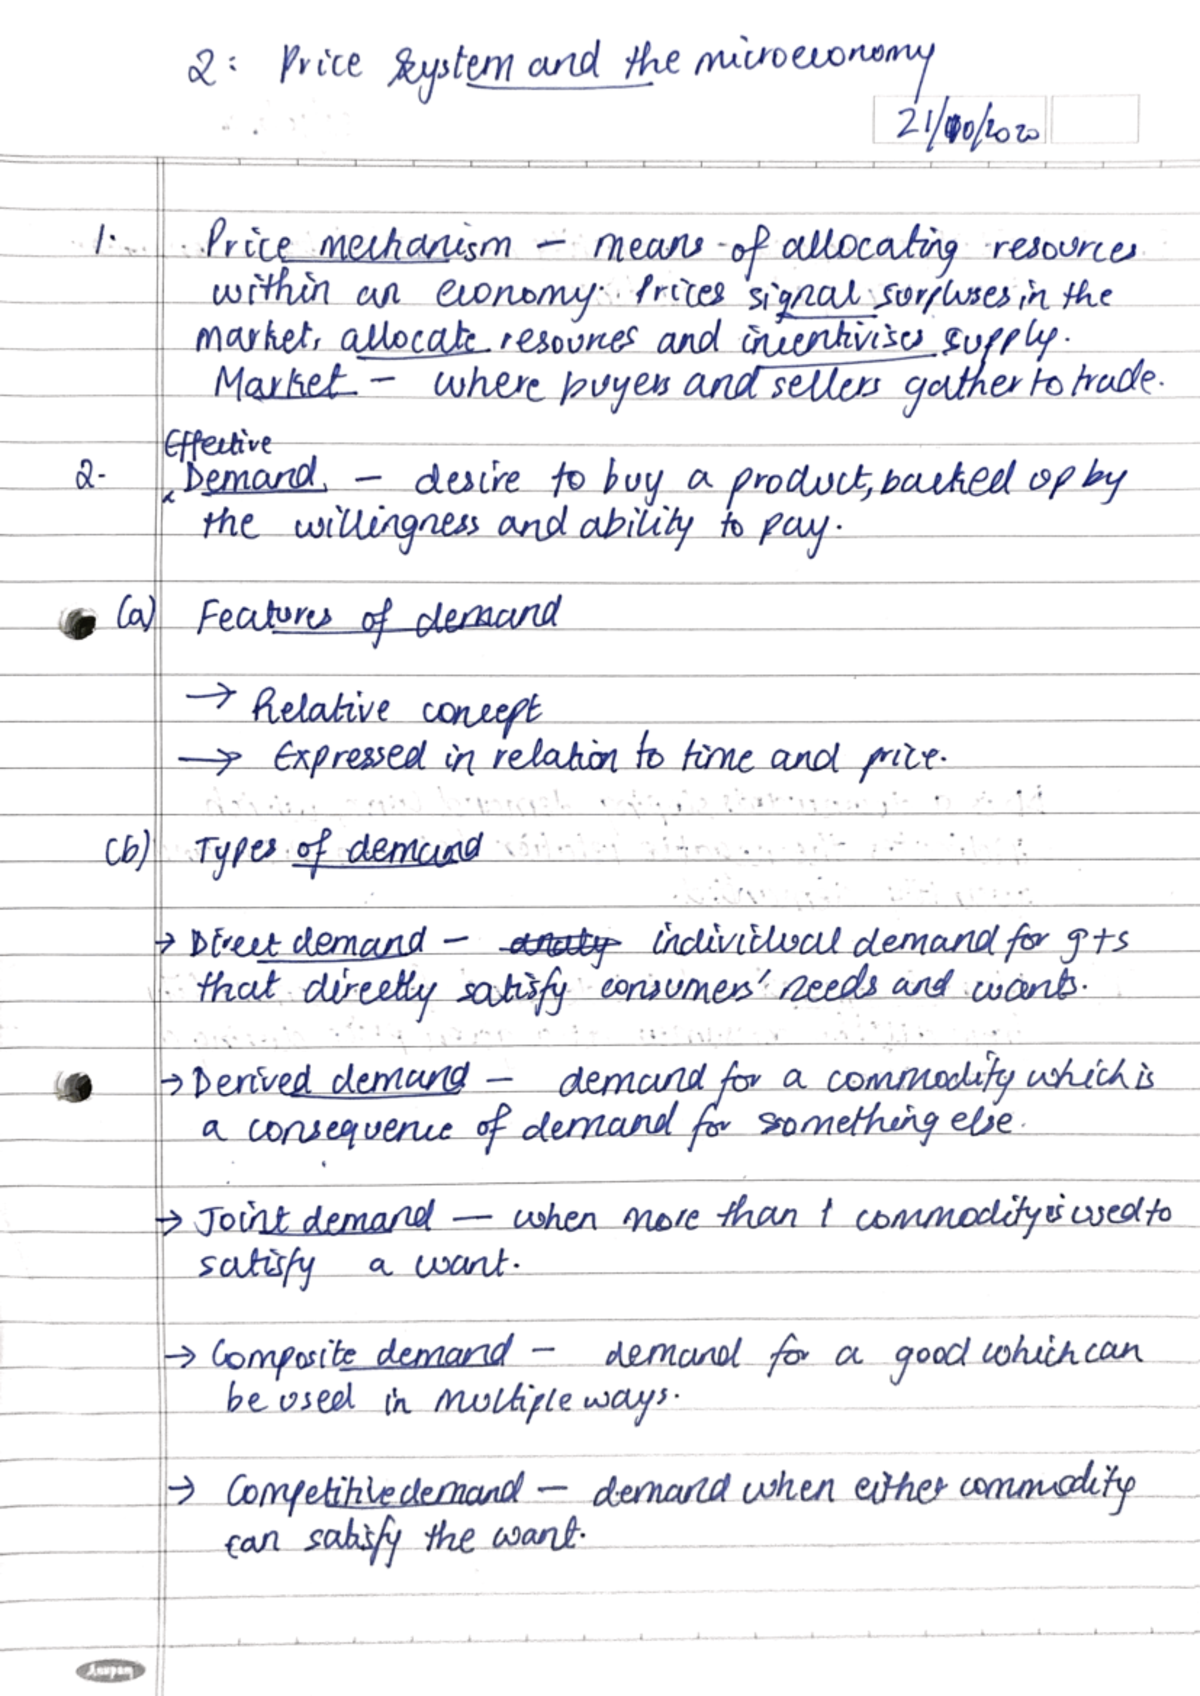 2: Price System and the microeconomy
21/10/2020
1. Price mechanism – means of allocating resources
within an economy. Prices signal surpluses in the
market, allocate resources and incentivises supply.
Market – where buyers and sellers gather to trade.
Effective
2- Demand – desire to buy a product, backed up by
the willingness and ability to pay.
(a) Features of demand
→ Relative concept
→ Expressed in relation to time and price.
(b) Types of demand
→ Direct demand – individual demand for g+s
that directly satisfy consumers' needs and wants.
→ Derived demand – demand for a commodity which is
a consequence of demand for something else.
→ Joint demand – when more than 1 commodity is used to
satisfy a want.
→ Composite demand – demand for a good which can
be used in multiple ways.
→ Competitive demand – demand when either commodity
can satisfy the want.
Anupam